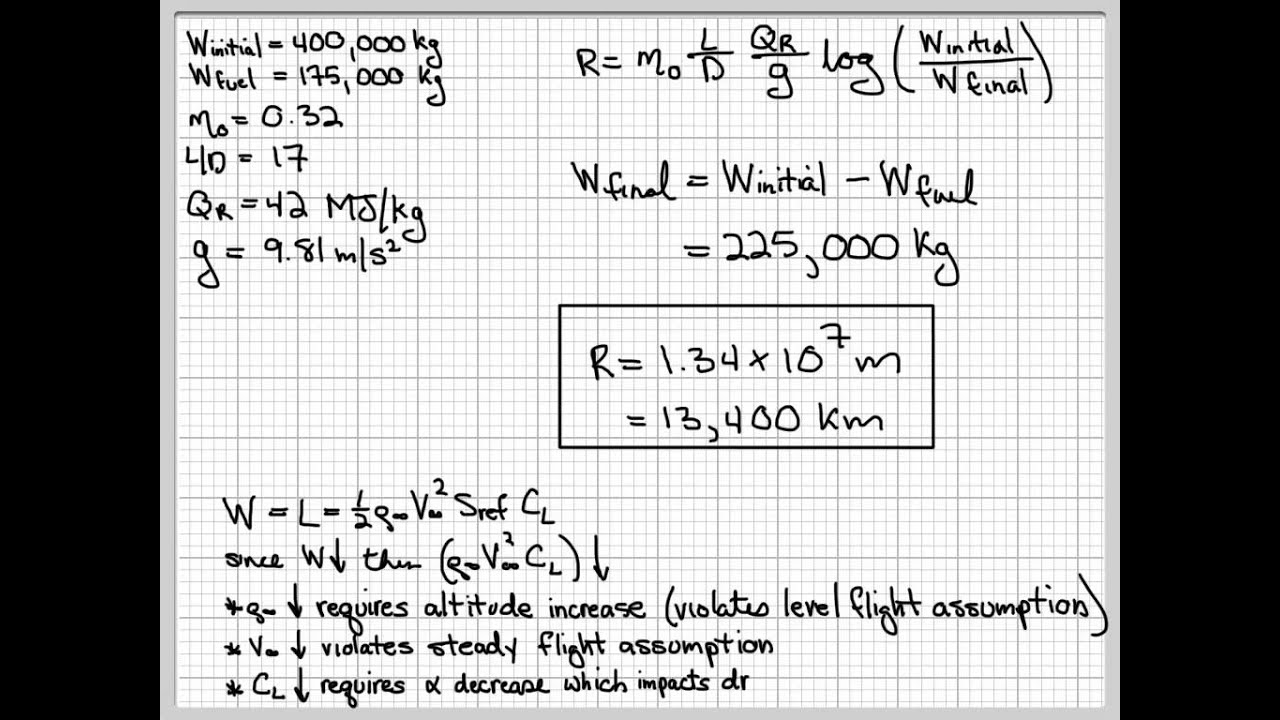 Winitial = 400,000 kg
Wfuel = 175,000 kg
η₀ = 0.32
L/D = 17
QR = 42 MJ/kg
g = 9.81 m/s²
R = η₀ L/D QR/g log (Winitial/Wfinal)
Wfinal = Winitial − Wfuel
= 225,000 kg
R = 1.34 × 10⁷ m
= 13,400 km
W = L = ½ ρ∞ V∞² Sref CL
since W↓ then (ρ∞ V∞² CL) ↓
* ρ∞ ↓ requires altitude increase (violates level flight assumption)
* V∞ ↓ violates steady flight assumption
* CL ↓ requires α decrease which impacts dr